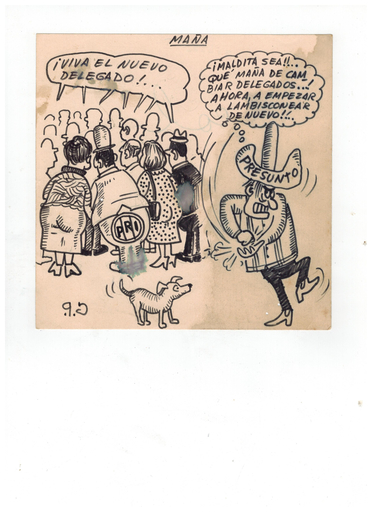 MAÑA
¡VIVA EL NUEVO
DELEGADO!...
¡MALDITA SEA!!...
QUÉ MAÑA DE CAM
BIAR DELEGADOS...!
AHORA, A EMPEZAR
A LAMBISCONEAR
DE NUEVO!...
PRESUNTO
PRI
G.P.